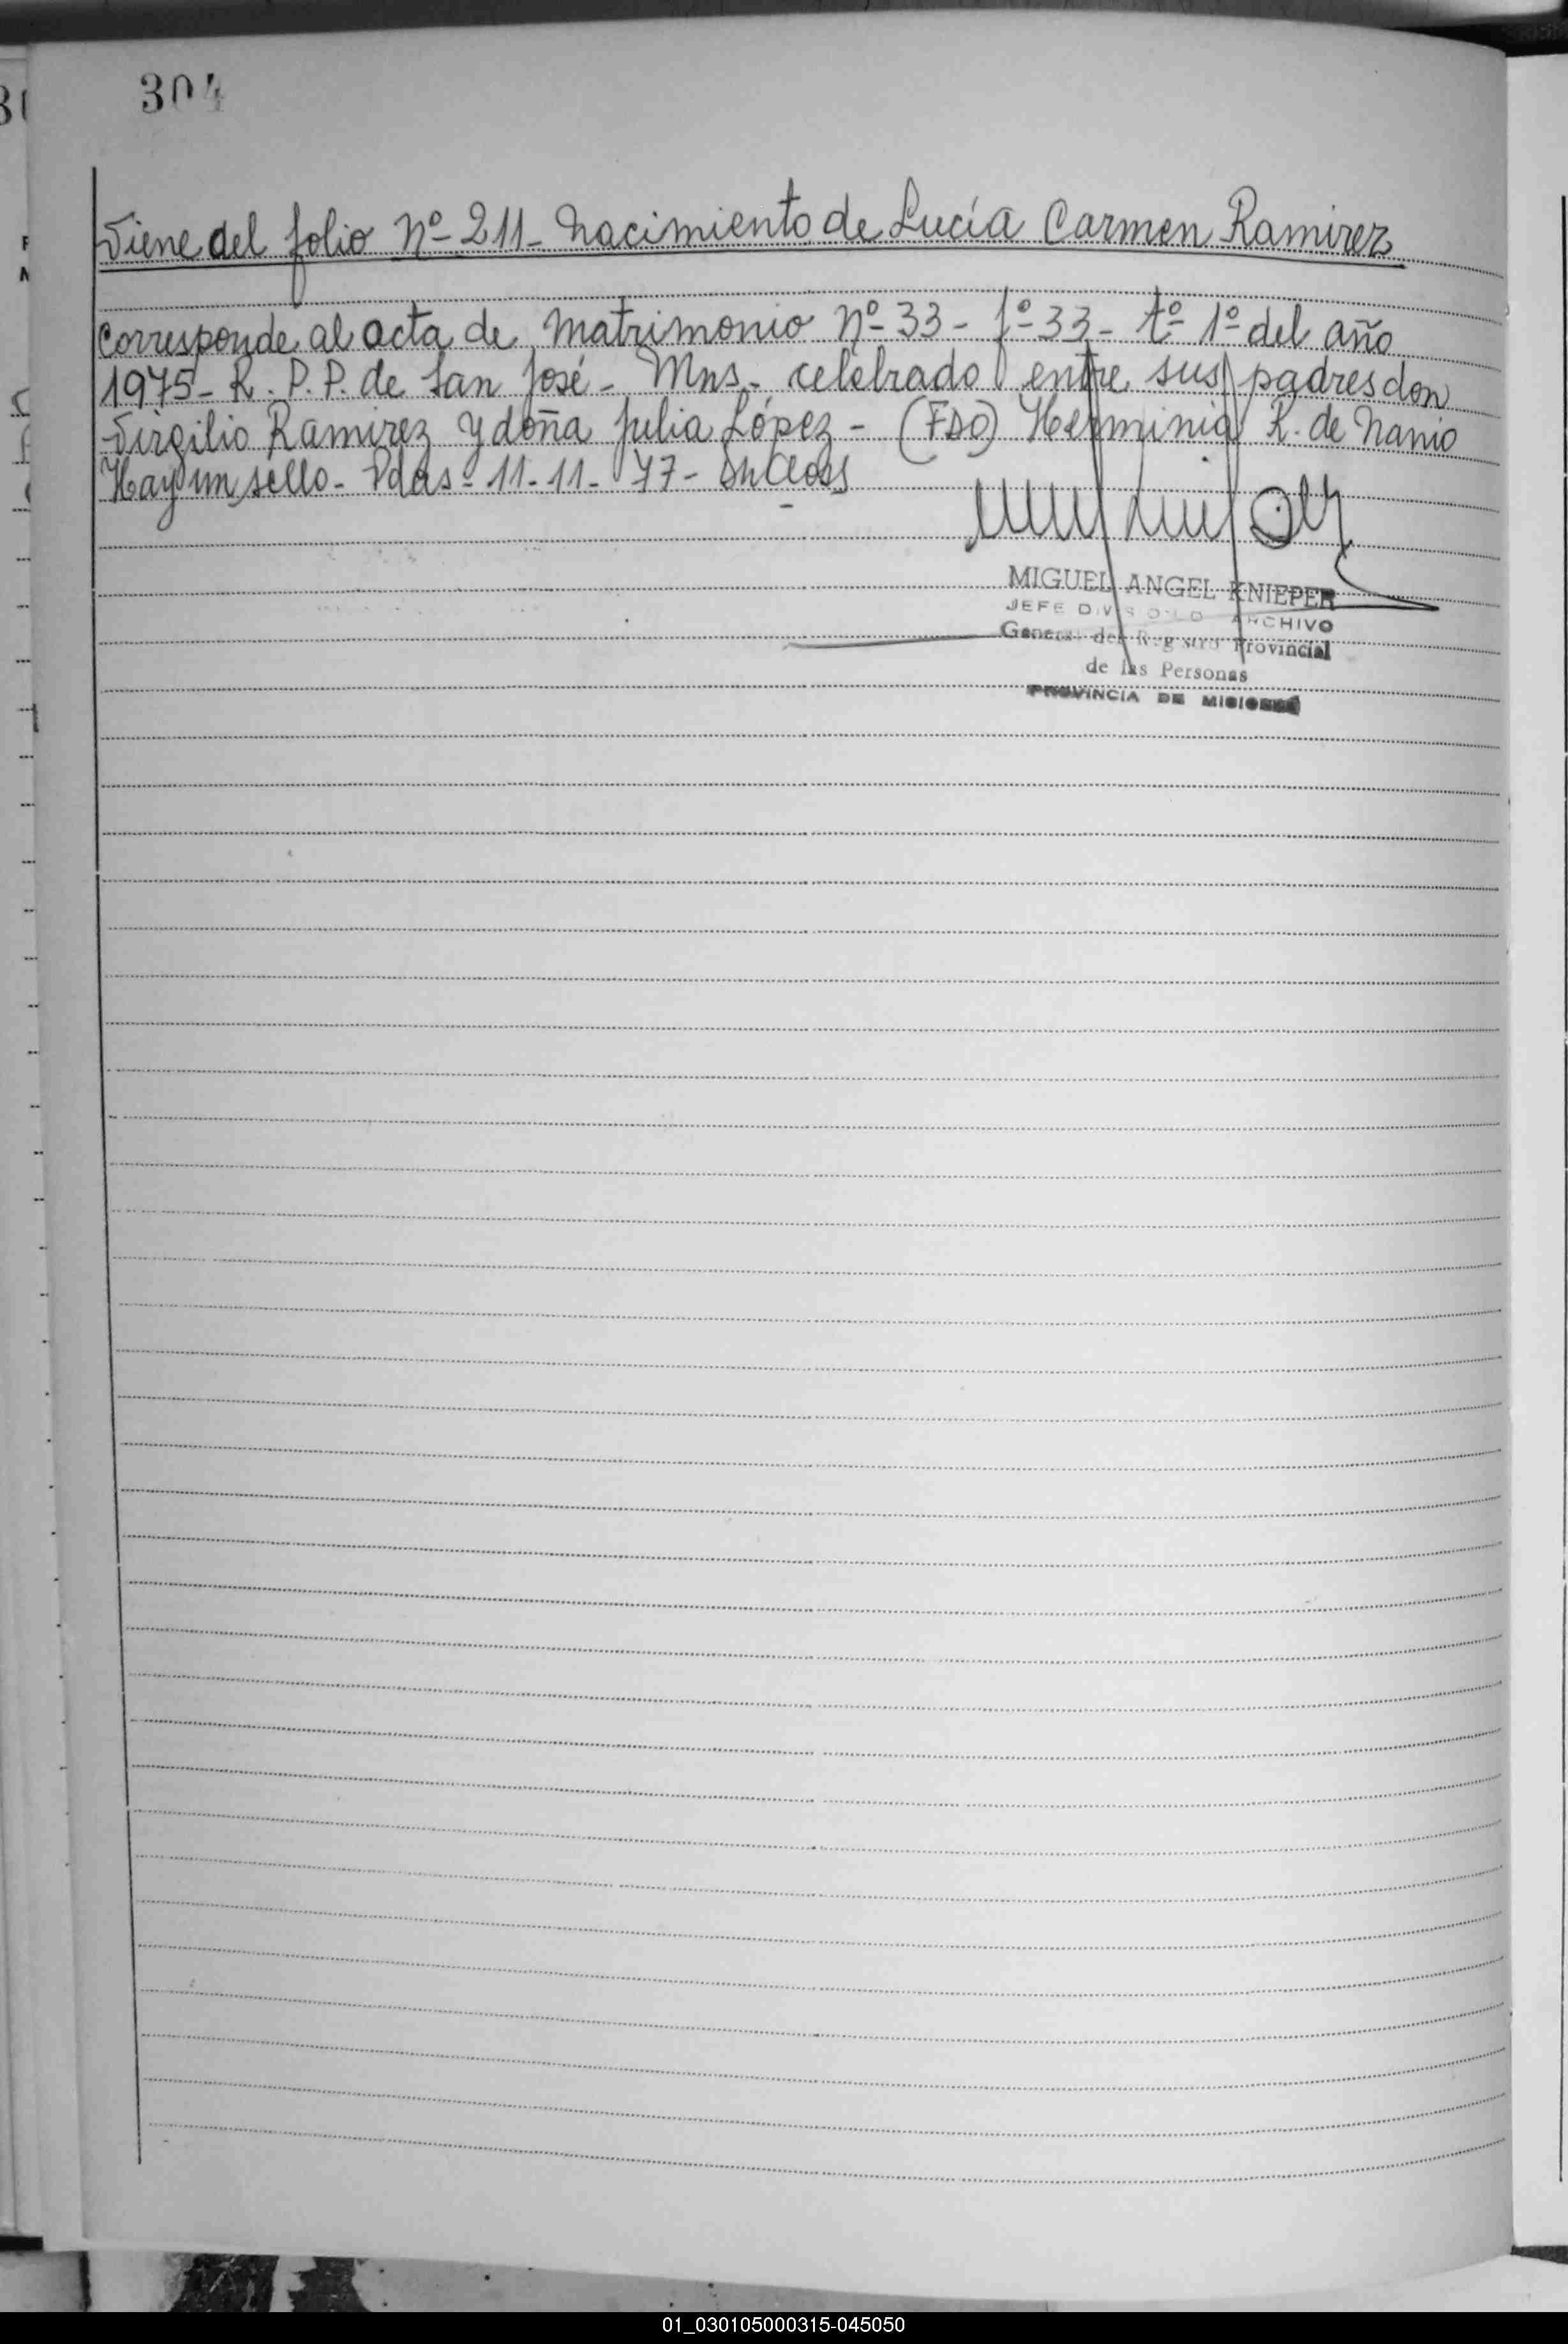 304
Viene del folio Nº 211 - Nacimiento de Lucía Carmen Ramirez
Corresponde al acta de Matrimonio Nº 33 - fº 33 - tº 1º del año
1975 - R. P. P. de San José - Mns - celebrado entre sus padres don
Virgilio Ramirez y doña Julia López - (FDO) Herminia R. de Nanio
Hay un sello - Pdas - 11 - 11 - 77 -
MIGUEL ANGEL KNIEPER
JEFE DIVISION ARCHIVO
General del Registro Provincial
de las Personas
PROVINCIA DE MISIONES
01_030105000315-045050